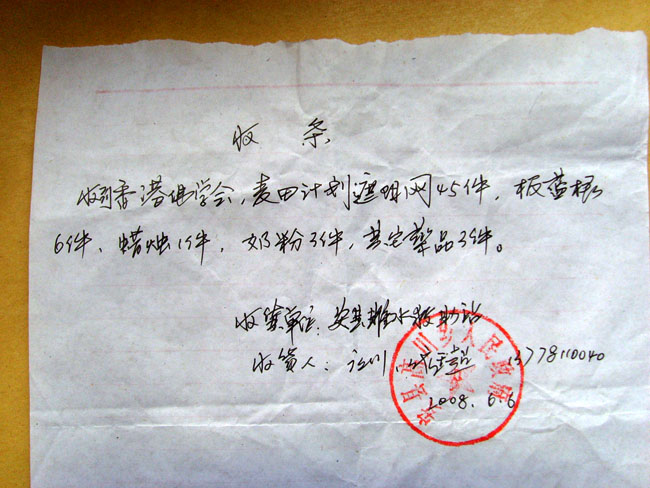 收条
收到香港佛学会,麦田计划遮阴网45件,板蓝根
6件、蜡烛1件,奶粉3件,其它药品3件。
收货单位:安县雎水救助站
收货人: 13778110040
2008.6.6
人民政府